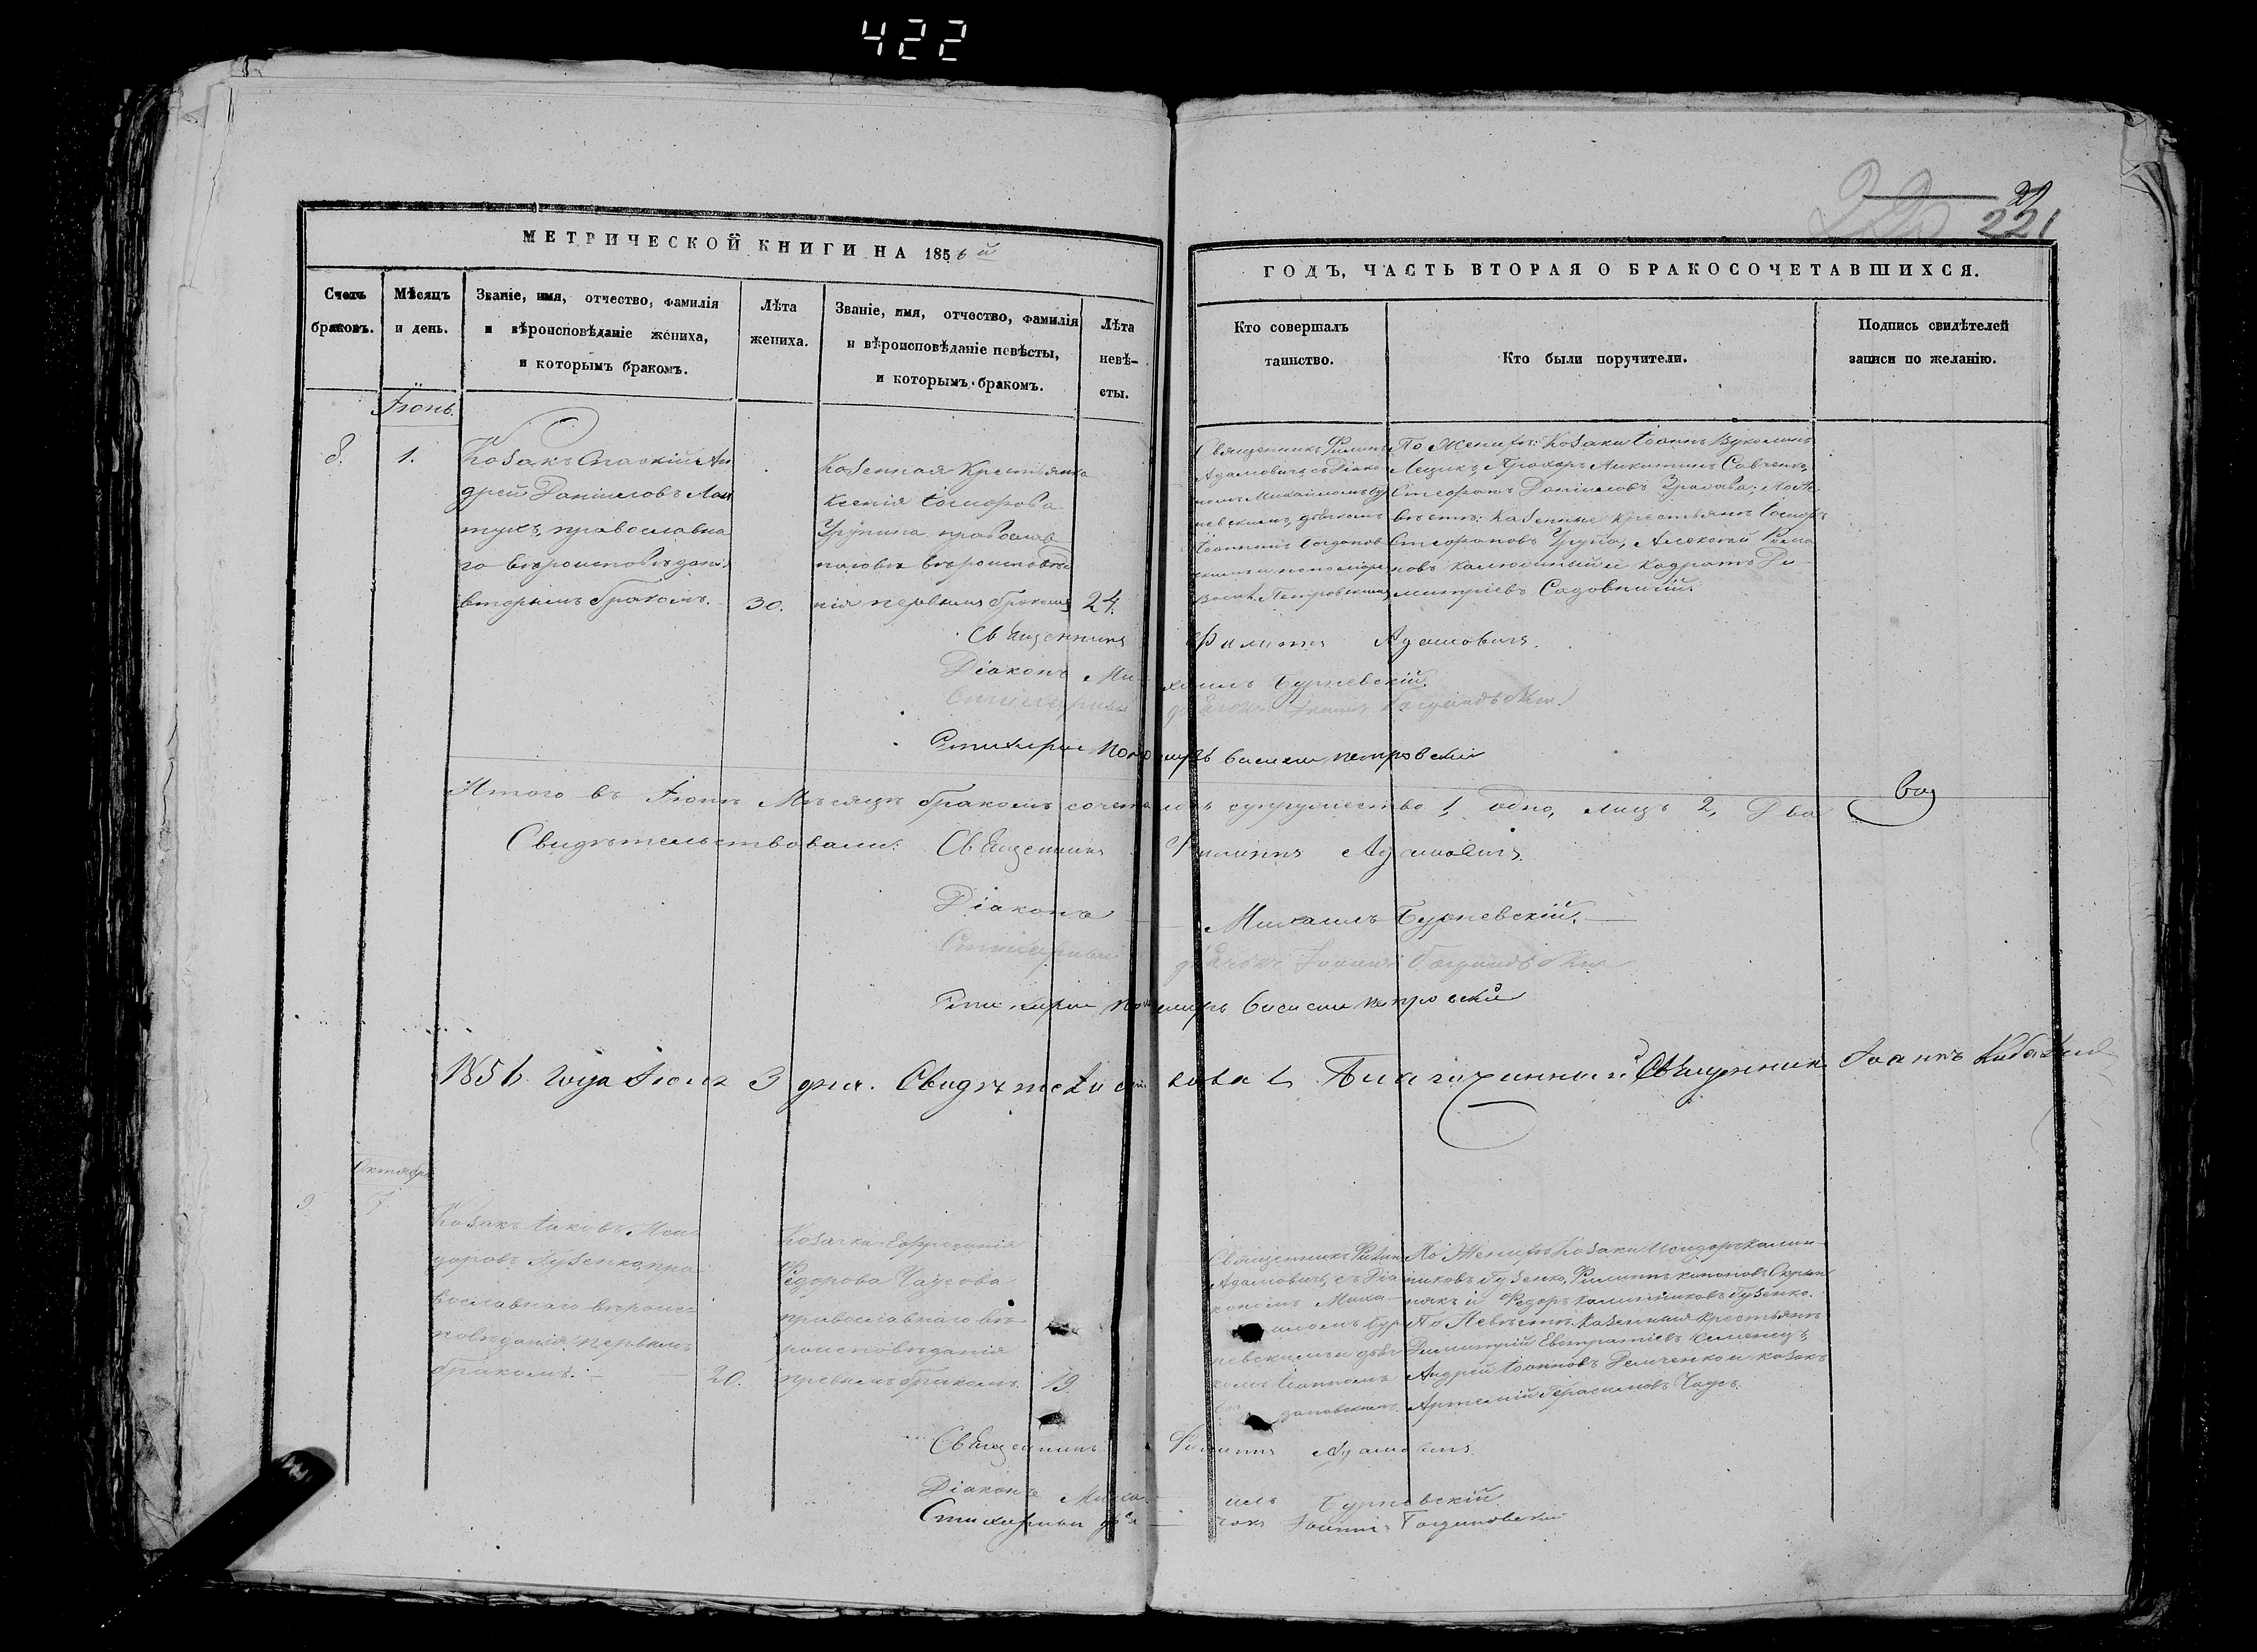 422
21
221
МЕТРИЧЕСКОЙ КНИГИ НА 1856й
ГОДЪ, ЧАСТЬ ВТОРАЯ О БРАКОСОЧЕТАВШИХСЯ.
Счетъ
браковъ.
Мѣсяцъ
и день.
Званіе, имя, отчество, фамилія
и вѣроисповѣданіе жениха,
и которымъ бракомъ.
Лѣта
жениха.
Званіе, имя, отчество, фамилія
и вѣроисповѣданіе невѣсты,
и которымъ бракомъ.
Лѣта
невѣ-
сты.
Кто совершалъ
таинство.
Кто были поручители.
Подпись свидѣтелей
записи по желанію.
Іюнь.
8.
1.
Козакъ Спаскій Ан
дрей Даніиловъ Лан
тухъ, православна
го вѣроисповѣданія
вторымъ бракомъ.
30.
Казенная Крестьянка
Ксенія Іосифова
православ
наго вѣроисповѣда
нія первымъ бракомъ
24.
Священникъ Филиппъ
Адамовичъ съ Діако
номъ Михаиломъ Бур
невскимъ, дьячкомъ
Іоанномъ Богданов
скимъ и пономаремъ
Васил. Петровскимъ
По Женихѣ: Козаки Іоаннъ
Лещикъ, Прохоръ Никитинъ Савченко,
Стефанъ Даніиловъ По Не
вѣстѣ: Казенные крестьяне Іосифъ
Стефановъ Алексей Рома
новъ и Кодратъ Ди
митріевъ Садовничій.
Священникъ Филиппъ Адамовичъ.
Діаконъ Михаилъ Бурневскій.
Стихарный дьячокъ Іоаннъ Богдановскій
Стихарный пономарь Василій Петровскій
Итого въ Іюнѣ Мѣсяцѣ бракомъ сочеталось супружество 1, одно, лицъ 2, Два
Свидѣтельствовали: Священникъ Филиппъ Адамовичъ.
Діаконъ Михаилъ Бурневскій.
Стихарный дьячокъ Іоаннъ Богдановскій
Стихарный пономарь Василій Петровскій
1856 года Іюля 3 дня. Свидѣтельствовалъ Благочинный Священникъ Іоаннъ
Октябрь
9.
7
Козакъ Іаковъ Иси
доровъ Гузенко, пра
вославнаго вѣроис-
повѣданія первымъ
бракомъ.
20.
Козачка Евфросинія
Федорова Чаусова
православнаго вѣ
роисповѣданія
первымъ бракомъ.
19.
Священникъ Филиппъ
Адамовичъ, съ Діа
кономъ Миха-
иломъ Бур
невскимъ и дьяч
комъ Іоанномъ
Богдановскимъ.
По Женихѣ Козаки Исидоръ Калин-
никовъ Гузенко, Филиппъ
и Федоръ Калинниковъ Гузенко.
По Невѣстѣ: казенные крестьяне
Димитрій Евстратіевъ Семенецъ,
Андрей Іоанновъ Демченко и козакъ
Артемій Герасимовъ Чаусъ.
Священникъ Филиппъ Адамовичъ
Діаконъ Михаилъ Бурневскій
Стихарный дьячокъ Іоаннъ Богдановскій